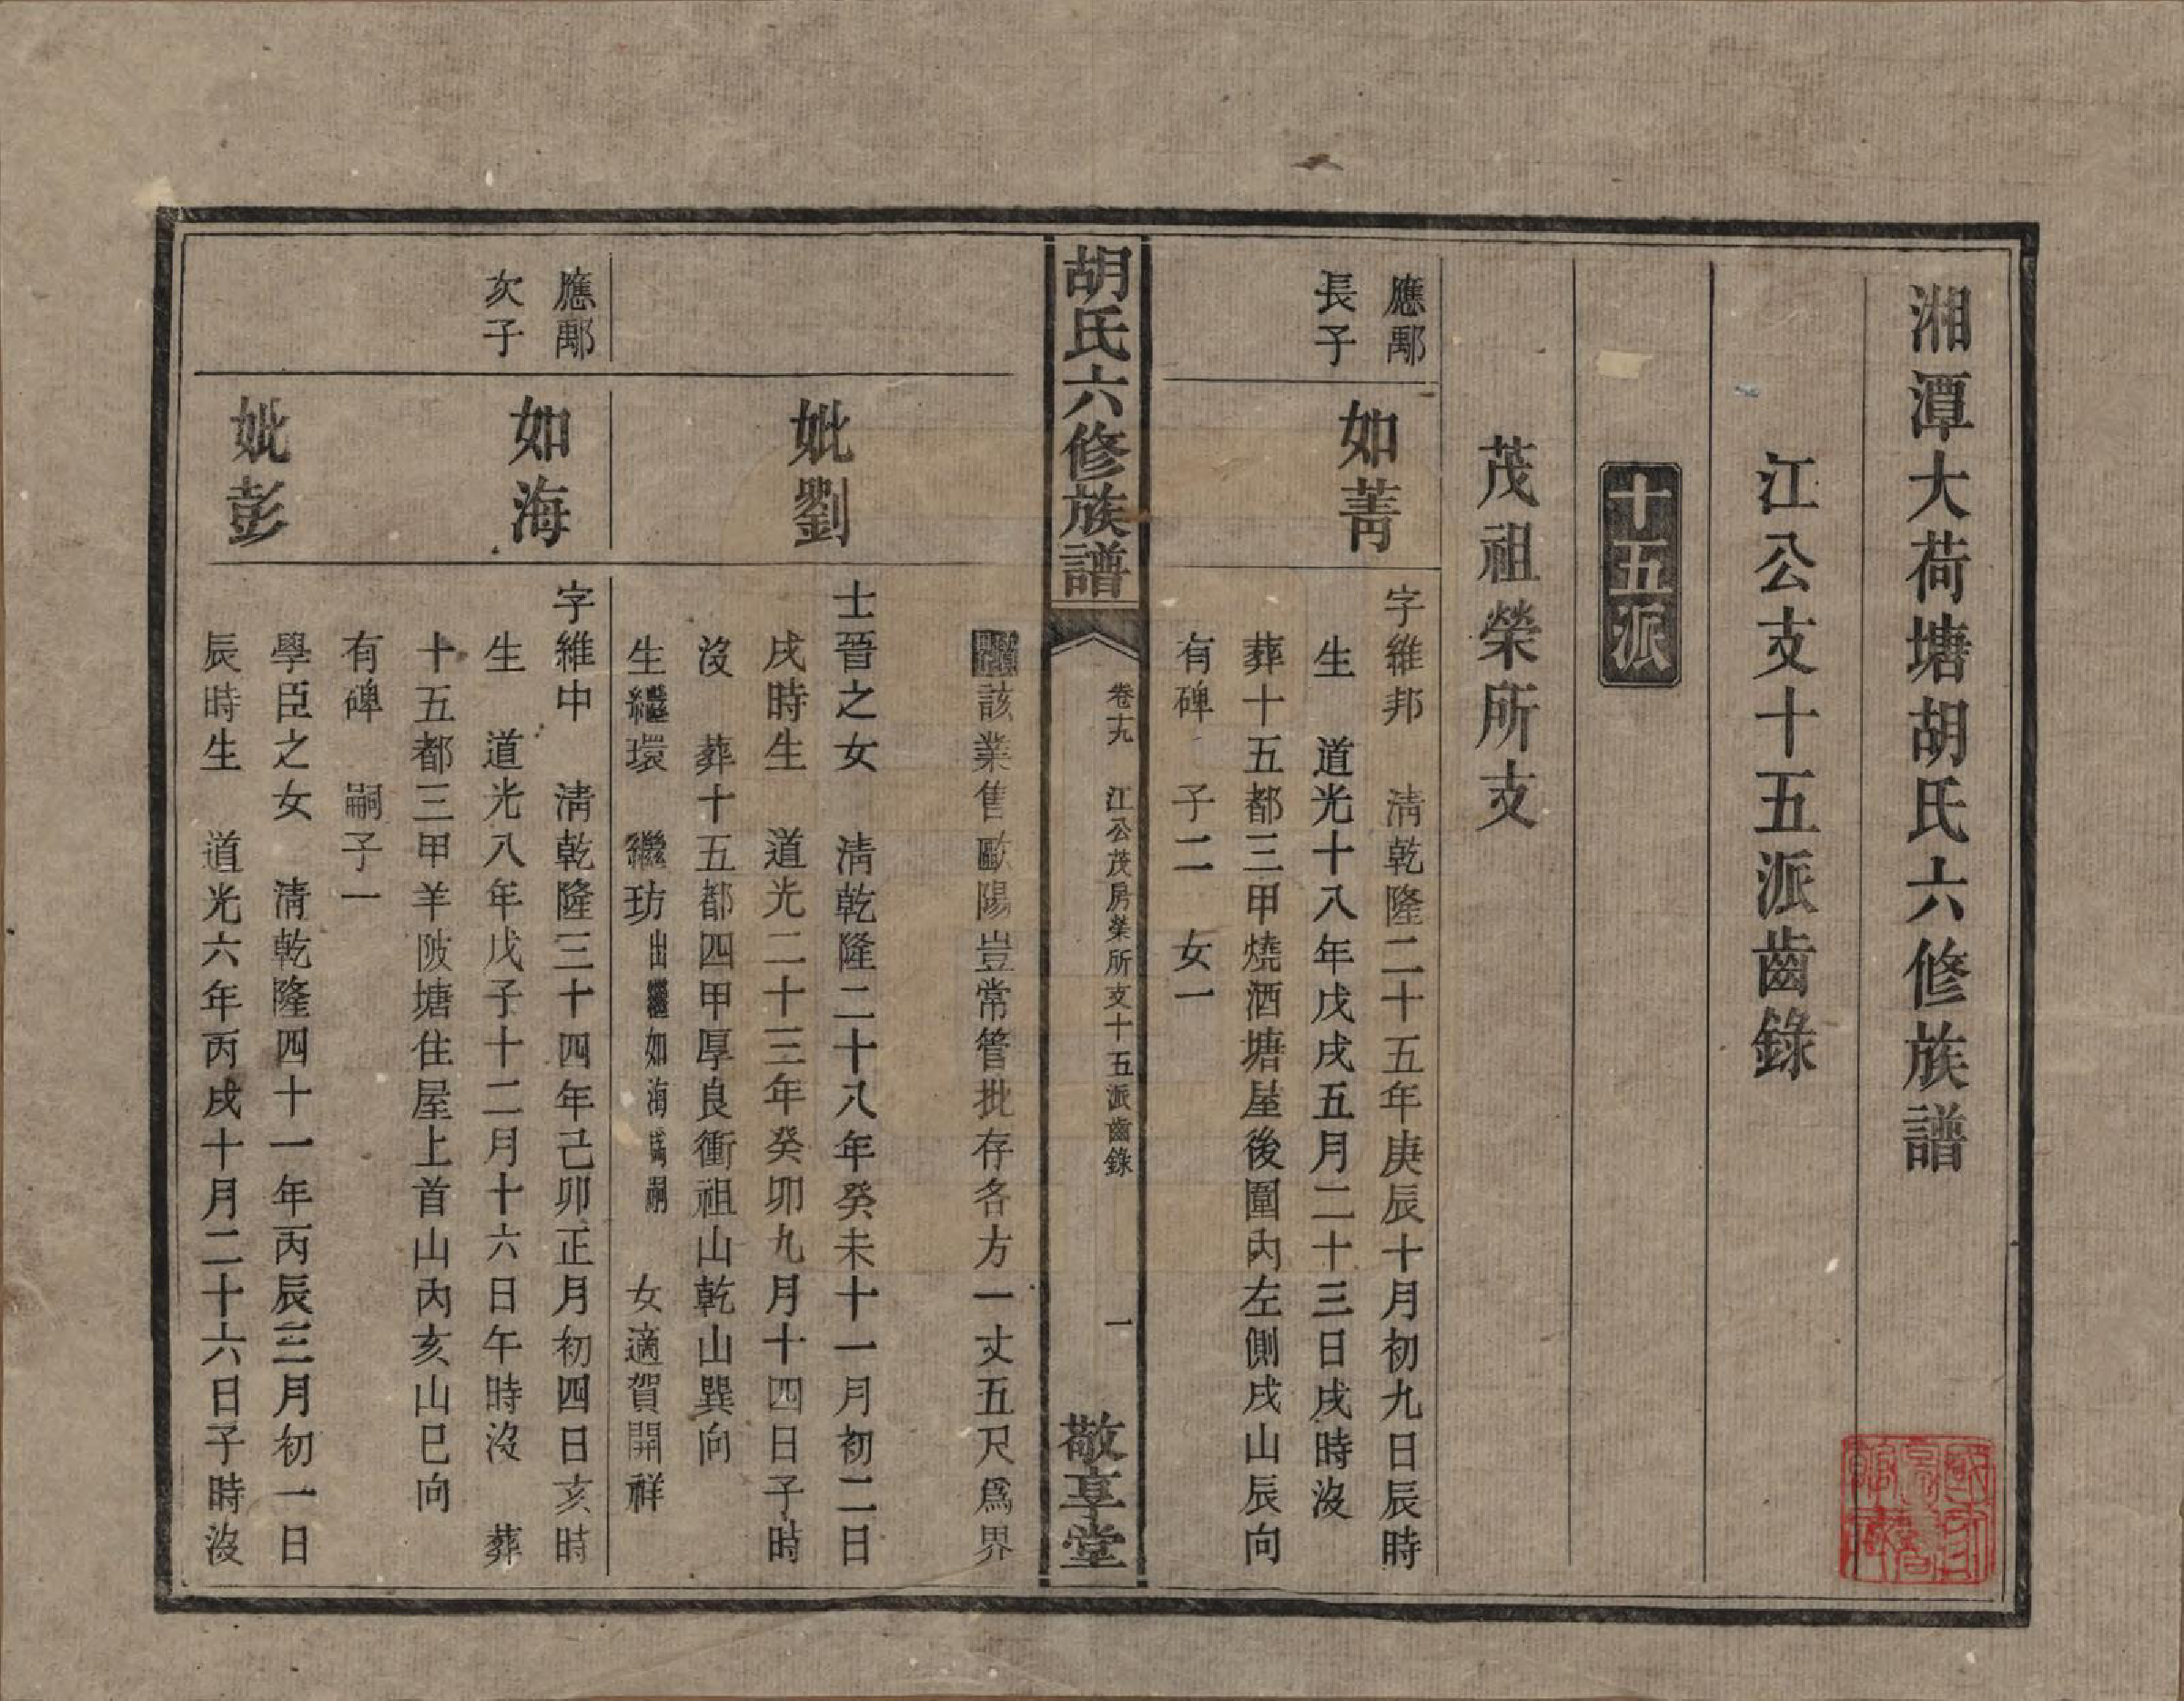 湘潭大荷塘胡氏六修族譜
江公支十五派齒錄
十五派
茂祖榮所支
應鄅
長子
如菁
字維邦　清乾隆二十五年庚辰十月初九日辰時
生　道光十八年戊戌五月二十三日戌時沒
葬十五都三甲燒酒塘屋後圍內左側戌山辰向
有碑　子二　女一
胡氏六修族譜
卷十九　江公茂房榮所支十五派齒錄
一
敬享堂
該業售歐陽豈常管批存各方一丈五尺爲界
妣劉
士晉之女　清乾隆二十八年癸未十一月初二日
戌時生　道光二十三年癸卯九月十四日子時
沒　葬十五都四甲厚良衝祖山乾山巽向
生繼環　繼玏出繼如海爲嗣　女適賀開祥
應鄅
次子
如海
字維中　清乾隆三十四年己卯正月初四日亥時
生　道光八年戊子十二月十六日午時沒　葬
十五都三甲羊陂塘住屋上首山內亥山巳向
有碑　嗣子一
妣彭
學臣之女　清乾隆四十一年丙辰三月初一日
辰時生　道光六年丙戌十月二十六日子時沒